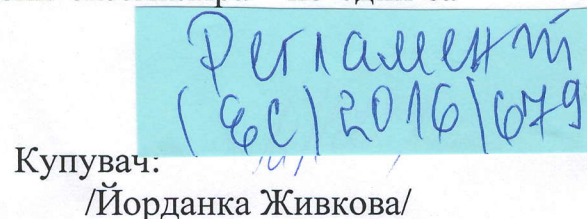 по един за
Регламент
(ЕС) 2016/679
Купувач:
/Йорданка Живкова/